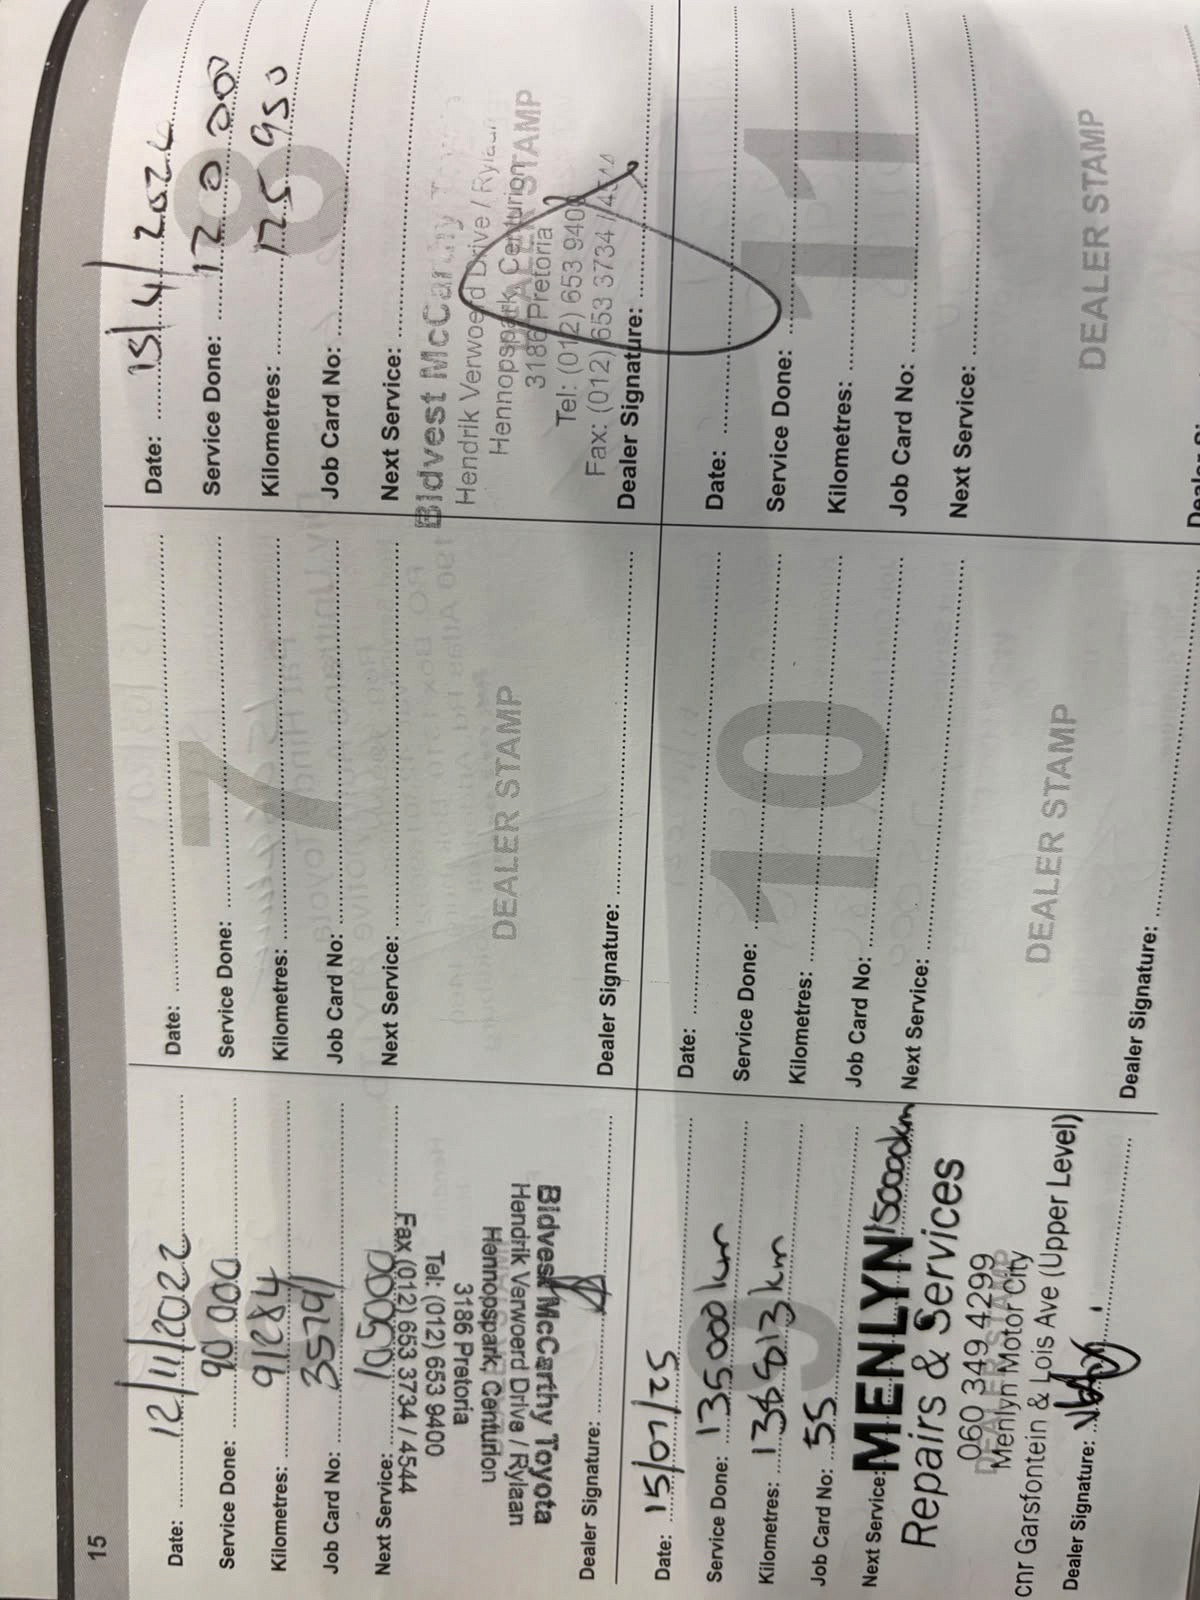 15
Date: 12/11/2022
Service Done: 90 000
Kilometres: 91284
Job Card No: 35791
Next Service: 105000
Fax (012) 653 3734 / 4544
Tel: (012) 653 9400
3186 Pretoria
Hennopspark, Centurion
Hendrik Verwoerd Drive / Rylaan
Bidvest McCarthy Toyota
Dealer Signature:
7
Date:
Service Done:
Kilometres:
Job Card No:
Next Service:
DEALER STAMP
Dealer Signature:
8
Date: 15/4/2024
Service Done: 120 000
Kilometres: 125 950
Job Card No:
Next Service:
Bidvest McCarthy
Hendrik Verwoerd Drive / Rylaan
Hennopspark, Centurion
DEALER STAMP
3186 Pretoria
Tel: (012) 653 9400
Fax: (012) 653 3734 / 4544
Dealer Signature:
9
Date: 15/01/25
Service Done: 135 000 km
Kilometres: km
Job Card No: 55
Next Service: 150000km
MENLYN
Repairs & Services
060 349 4299
DEALER STAMP
Menlyn Motor City
Cnr Garsfontein & Lois Ave (Upper Level)
Dealer Signature:
10
Date:
Service Done:
Kilometres:
Job Card No:
Next Service:
DEALER STAMP
Dealer Signature:
11
Date:
Service Done:
Kilometres:
Job Card No:
Next Service:
DEALER STAMP